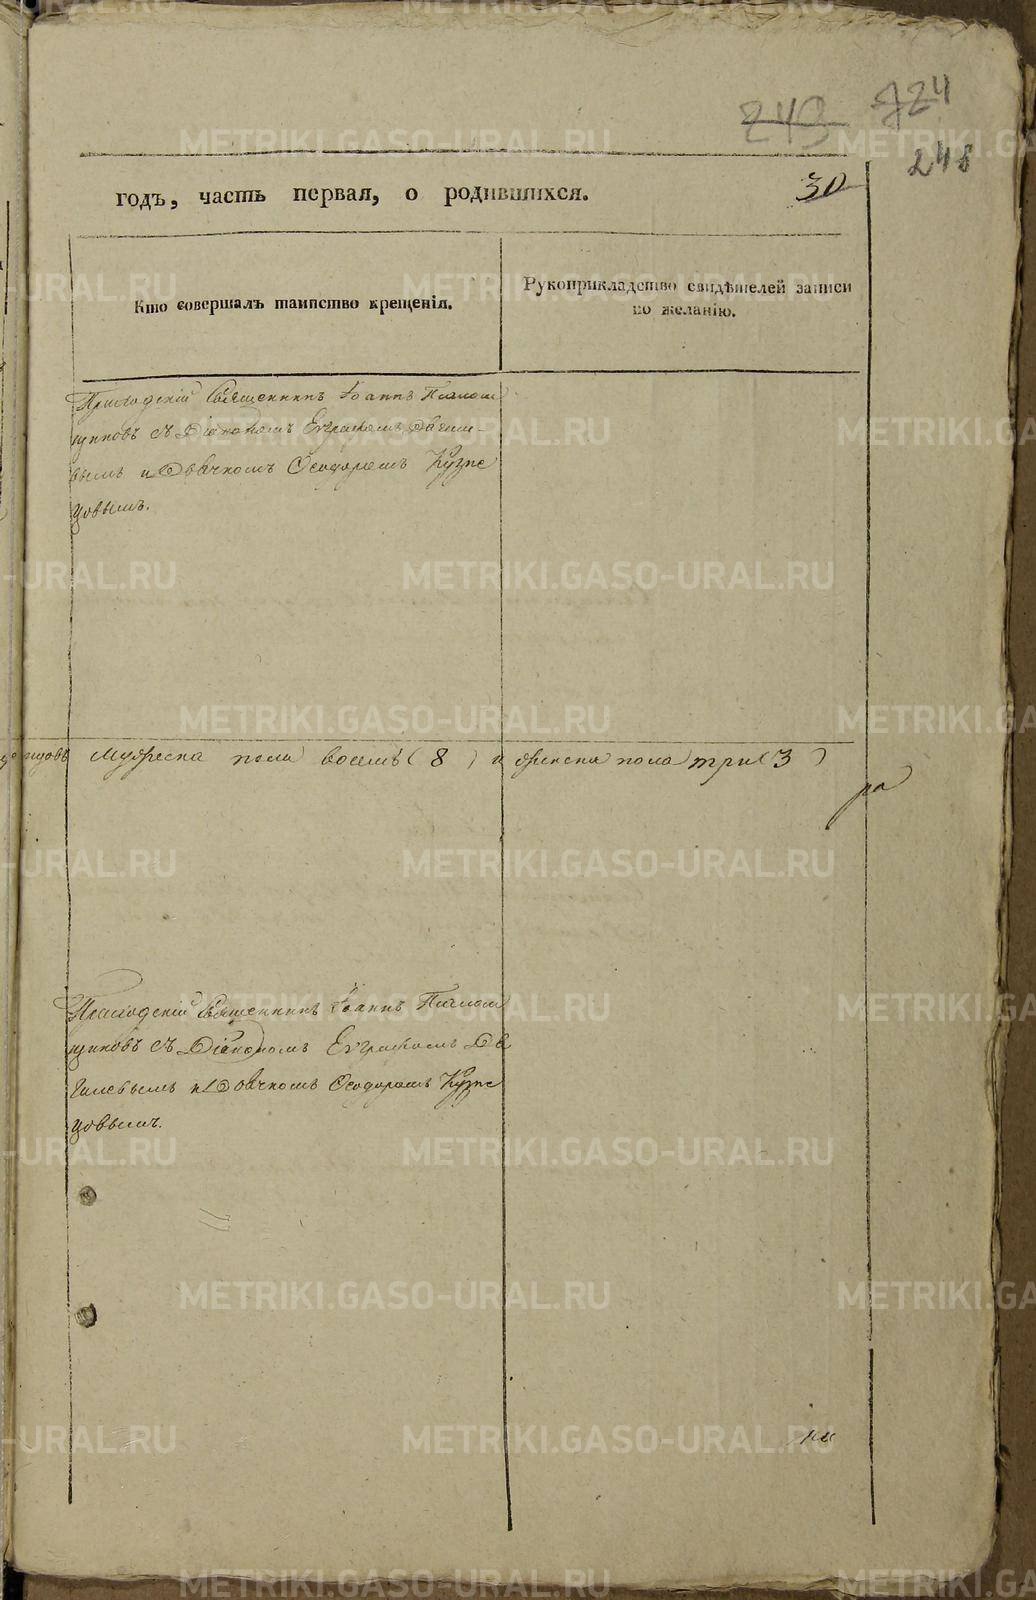 243 724
248
годъ, часть первая, о родившихся. 30
Кто совершалъ таинство крещенія.
Рукоприкладство свидѣтелей записи
по желанію.
Приходскій Священникъ Іоаннъ
съ Діакономъ Евграфомъ
вымъ и Дьячкомъ Ѳеодоромъ Кузне
цовымъ.
мужеска пола восемь (8) и женска пола три (3)
ра
Приходскій Священникъ Іоаннъ
съ Діакономъ Евграфомъ
и Дьячкомъ Ѳеодоромъ Кузне
цовымъ.
METRIKI.GASO-URAL.RU